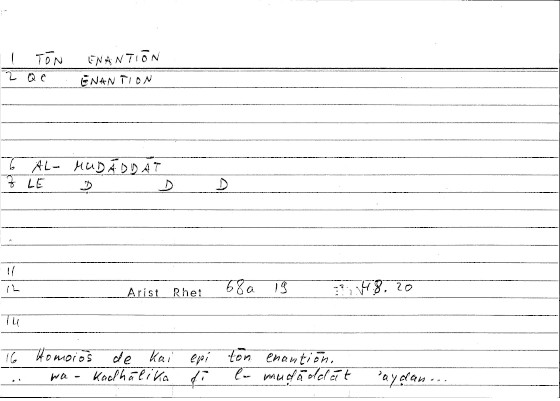 1 TŌN ENANTIŌN
2 QC ENANTION
6 AL- MUḌĀDDĀT
7 LE D D D
11
12 Arist Rhet 68a 19 48.20
14
16 Homoiōs de kai epi tōn enantiōn.
.. wa- kadhālika fī l- muḍāddāt 'ayḍan...